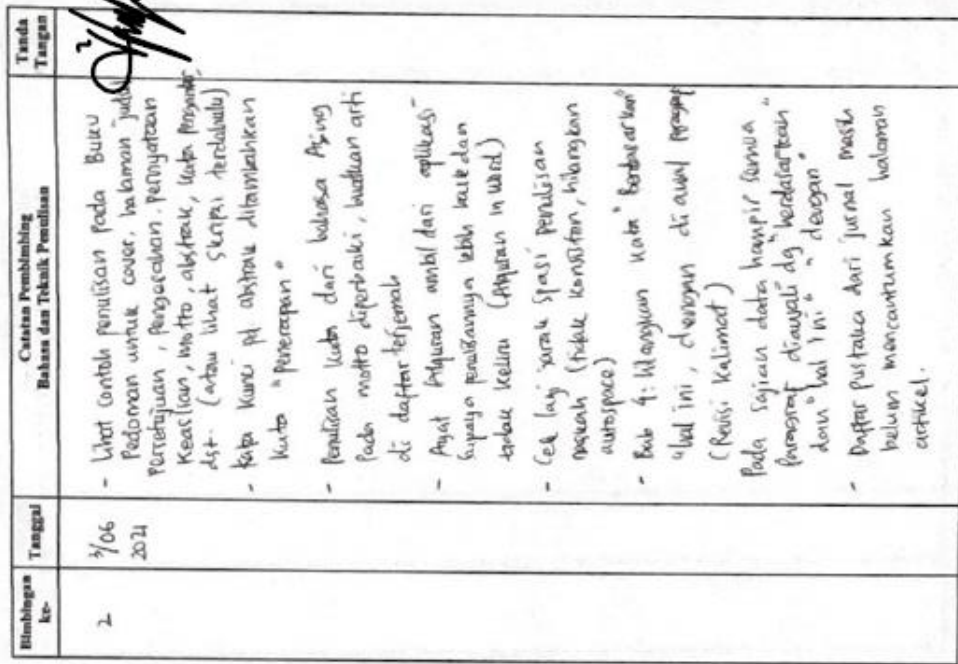 Bimbingan
ke-
Tanggal
Catatan Pembimbing
Bahasa dan Teknik Penulisan
Tanda
Tangan
2
3/06
2021
- Lihat contoh penulisan pada Buku
Pedoman untuk cover, halaman judul
Persetujuan, pengesahan, pernyataan
Keaslian, motto, abstrak, kata pengantar,
dst. (atau lihat skripsi terdahulu)
- Kata kunci pd abstrak ditambahkan
kata "penerapan"
- Penulisan kata dari bahasa Asing
pada motto diperbaiki, buatkan arti
di daftar terjemah
- Ayat Alquran ambil dari aplikasi
supaya penulisannya lebih baik dan
tidak keliru (Alquran in word)
- Cek lagi jarak spasi penulisan
naskah (tidak konsisten, hilangkan
autospace)
- Bab 4: hilangkan kata "Berdasarkan"
"hal ini, dengan di awal paragraf
(Revisi kalimat)
Pada sajian data hampir semua
paragraf diawali dg "berdasarkan"
dan "hal ini" "dengan"
- Daftar pustaka dari jurnal masih
belum mencantumkan halaman
artikel.
2